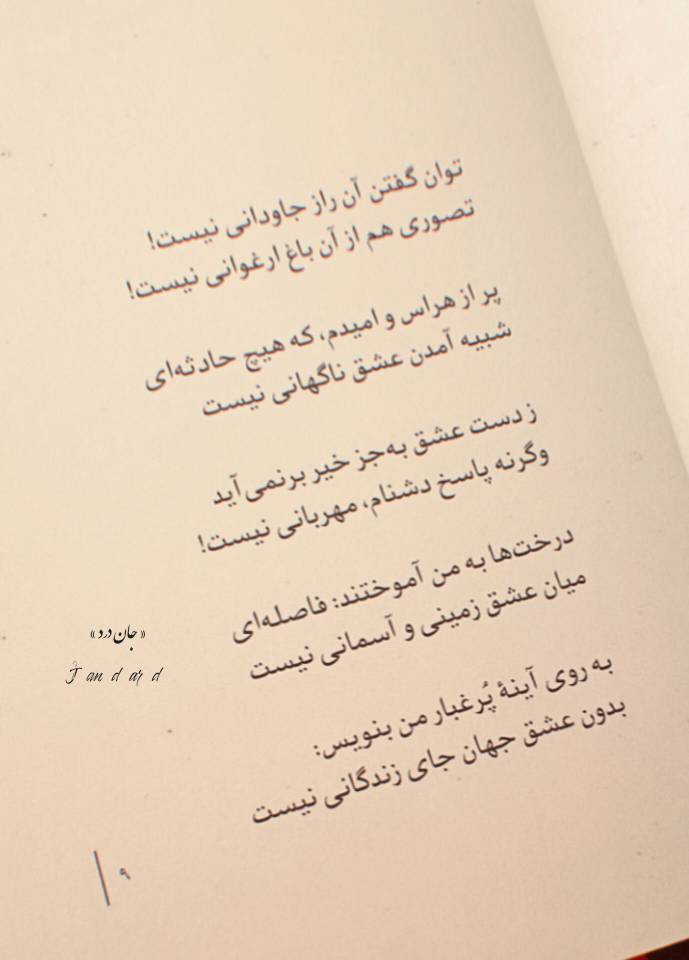 توان گفتن آن راز جاودانی نیست!
تصوری هم از آن باغ ارغوانی نیست!
پر از هراس و امیدم، که هیچ حادثه‌ای
شبیه آمدن عشق ناگهانی نیست
ز دست عشق به‌جز خیر برنمی‌آید
وگرنه پاسخ دشنام، مهربانی نیست!
درخت‌ها به من آموختند: فاصله‌ای
میان عشق زمینی و آسمانی نیست
به روی آینهٔ پُرغبار من بنویس:
بدون عشق جهان جای زندگانی نیست
« جان درد »
Jan dard
۹